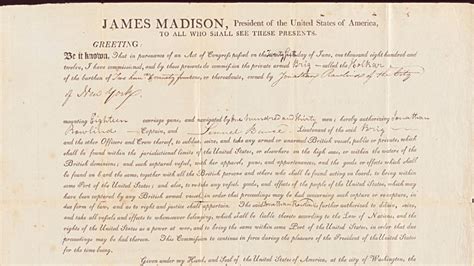 JAMES MADISON, President of the United States of America,
TO ALL WHO SHALL SEE THESE PRESENTS,
GREETING:
Be it known, That in pursuance of an Act of Congress passed on the of June, one thousand eight hundred and
twelve, I have commissioned, and by these presents do commission the private armed Brig called the Holkar
of the burthen of Two hundred & tons, or thereabouts, owned by Jonathan Rowland of the City
of New York
mounting Eighteen carriage guns, and navigated by one hundred and thirty men, hereby authorising Jonathan
Rowland Captain, and Samuel Lieutenant of the said Brig and
the other Officers and Crew thereof, to subdue, seize, and take any armed or unarmed British vessel, public or private, which
shall be found within the jurisdictional limits of the United States, or elsewhere on the high seas, or within the waters of the
British dominions; and such captured vessel, with her apparel, guns, and appurtenances, and the goods or effects which shall
be found on board the same, together with all the British persons and others who shall be found acting on board, to bring within
some Port of the United States; and also, to retake any vessel, goods, and effects of the people of the United States, which may
have been captured by any British armed vessel, in order that proceedings may be had concerning such capture or recapture, in
due form of law, and as to right and justice shall appertain. The said Jonathan Rowland further authorised to detain, seize,
and take all vessels and effects to whomsoever belonging, which shall be liable thereto according to the Law of Nations, and the
rights of the United States as a power at war, and to bring the same within some Port of the United States, in order that due
proceedings may be had thereon. This Commission to continue in force during the pleasure of the President of the United States
for the time being.
Given under my Hand, and Seal of the United States of America, at the city of Washington, the